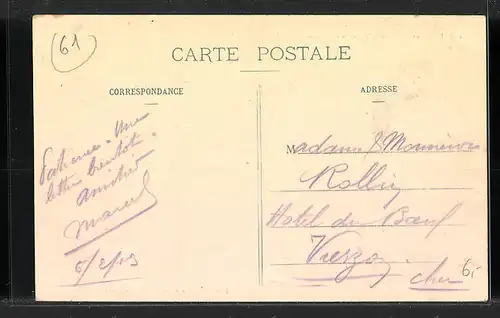 61
CARTE POSTALE
CORRESPONDANCE
ADRESSE
Patience. Une
lettre bientôt.
amitiés
Marcel
Madame & Monsieur
Rollin
Hotel du Bœuf
Vierzon
Cher
6,-